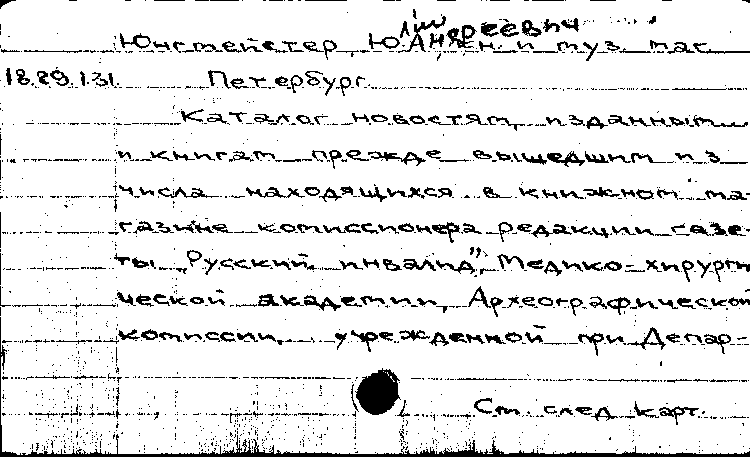 Андреевич
Юнгмейстер, Ю. А. Кн. и муз. маг.
1829.1.31. Петербург.
Каталог новостям, изданным
и книгам прежде вышедшим из
числа находящихся в книжном ма-
газине комиссионера редакции газе-
ты "Русский инвалид", Медико-хирурги
ческой академии, Археографической
комиссии, учрежденной при Депар-
См. след карт.